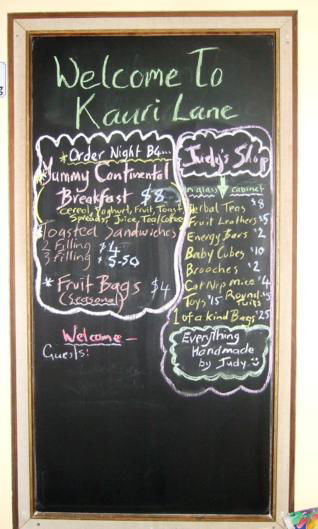 Welcome To
Kauri Lane
*Order Night B4...
Yummy Continental
Breakfast $8
Cereal, Yoghurt, Fruit, Toast
Spreads, Juice, Tea/Coffee
Toasted Sandwiches
2 Filling $4
3 Filling $5-50
* Fruit Bags $4
(seasonal)
Welcome -
Guests:
Judy's Shop
in glass cabinet
Herbal Teas $8
Fruit Leathers $5
Energy Bars $2
Baby Cubes $10
Brooches $2
Cat Nip mice $4
Toys $15
1 of a kind Bags $25
Everything
Handmade
by Judy